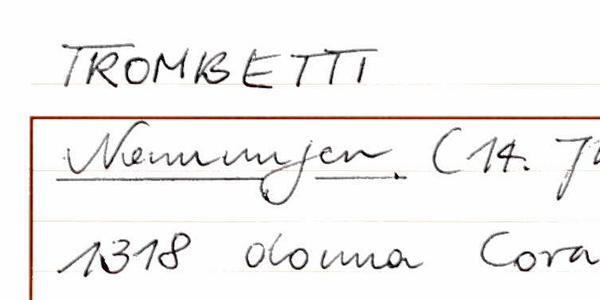 TROMBETTI
Nennungen (14. Jh
1318 donna Cora